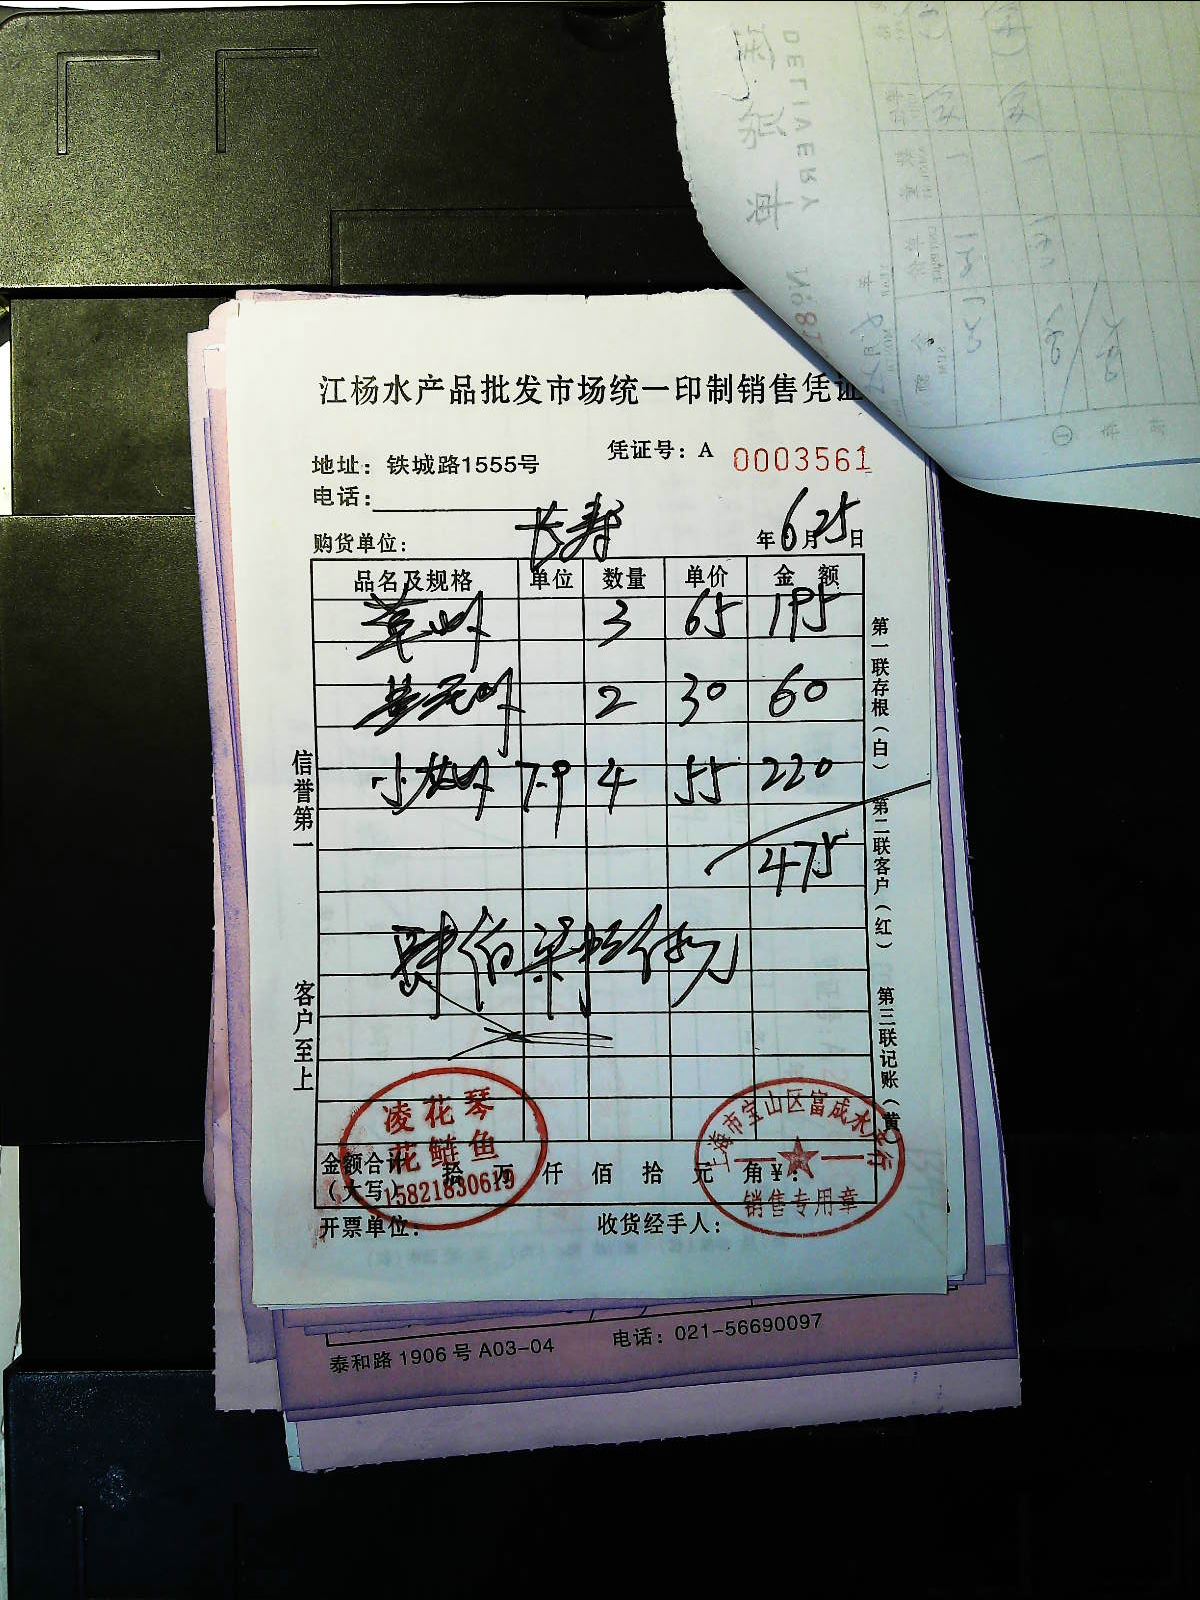 江杨水产品批发市场统一印制销售凭证
凭证号：A 0003561
地址：铁城路1555号
电话：
购货单位： 长寿 年6月25日
品名及规格 单位 数量 单价 金额
3 65 195
2 30 60
小 7-9 4 55 220
475
肆佰柒拾伍元
信誉第一 客户至上
第一联存根（白） 第二联客户（红） 第三联记账（黄）
凌花琴
花鲢鱼
15821830619
上海市宝山区富成水产行
销售专用章
金额合计
（大写） 拾 万 仟 佰 拾 元 角 ¥：
开票单位： 收货经手人：
泰和路1906号A03-04 电话：021-56690097